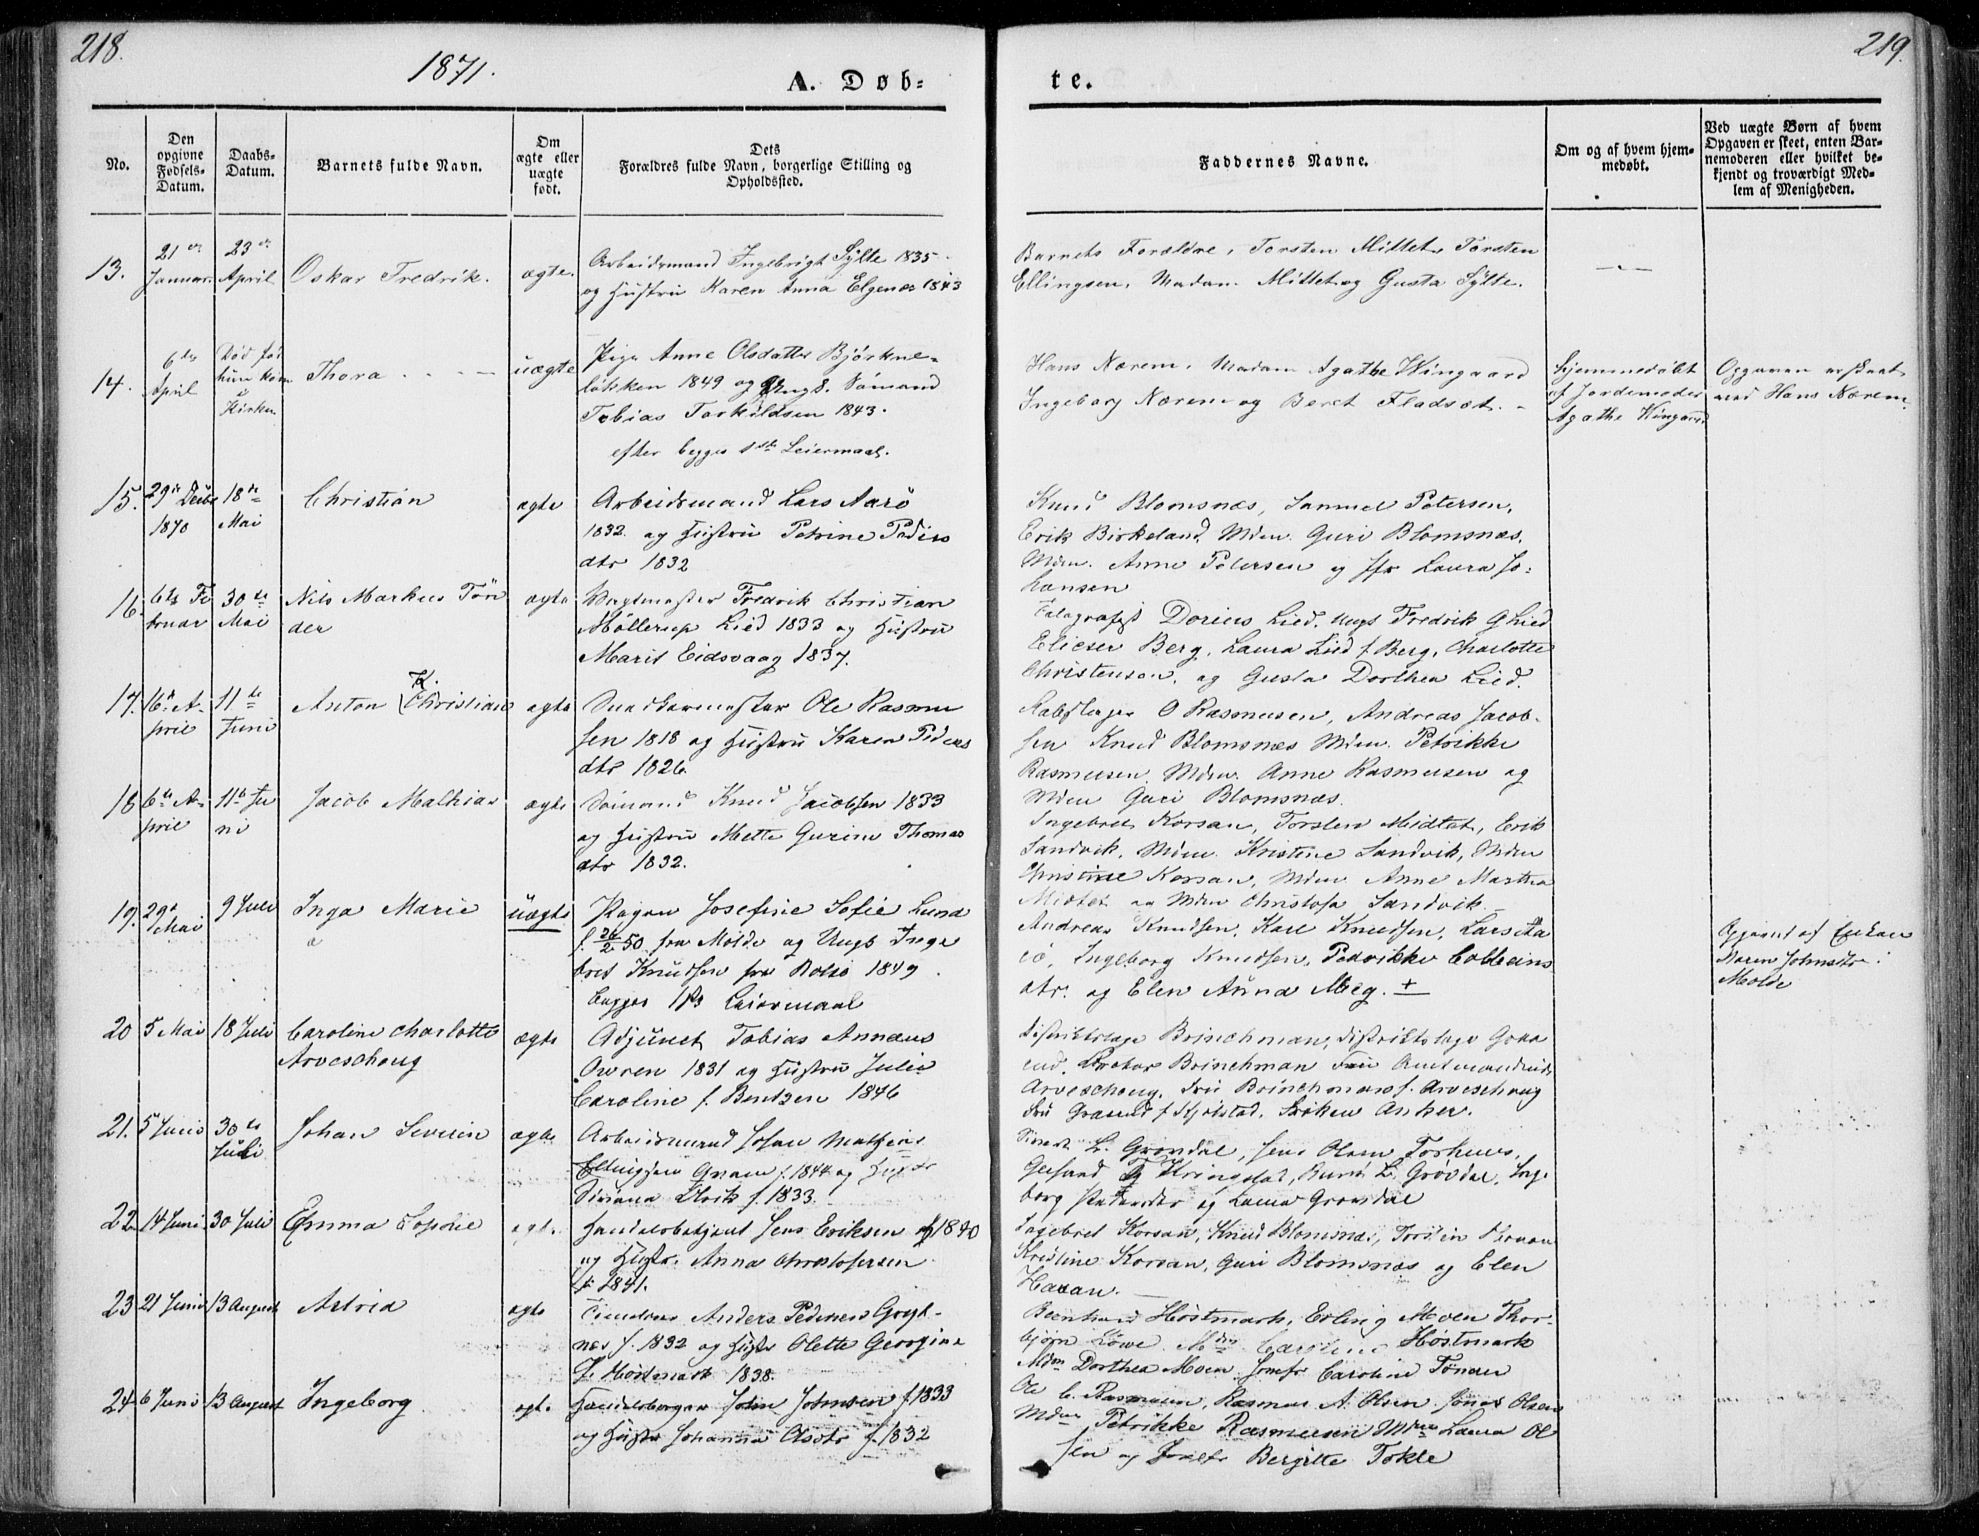 218.
1871.
A. Døb-
te.
219.
No.
Den
opgivne
Fødsels-
Datum.
Daabs-
Datum.
Barnets fulde Navn.
Om
ægte eller
uægte
født.
Dets
Forældres fulde Navn, borgerlige Stilling og
Opholdssted.
Faddernes Navne.
Om og af hvem hjem-
medøbt.
Ved uægte Børn af hvem
Opgaven er skeet, enten Bar-
nemoderen eller hvilket be-
kjendt og troværdigt Med-
lem af Menigheden.
13.
21
Januar
23
April
Oskar Fredrik.
ægte.
Arbeidsmand Ingebrigt Sylte 1835
og Hustru Karen Anna Elgenæs 1843
Barnets Forældre, Torsten Mittet, Torsten
Ellingsen, Madam Mittet og Gusta Sylte.
14.
6te
April
Død før
hun kom
Kirken
Thora
uægte
Pige Anne Olsdatter Bjørkne-
løkken 1849 og Ungk. Sømand
Tobias Torkildsen 1843.
efter begges 1ste Leiermaal.
Hans Nærem, Madam Agathe Wingaard
Ingeborg Nærem og Beret Fladsæt.
Hjemmedøbt
af Jordemoder
Agathe Wingaard
Opgaven er skeet
ved Hans Nærem.
15.
29de Decbr
1870
18de
Mai
Christian
ægte
Arbeidsmand Lars Aarø
1832 og Hustru Petrine Peders
dtr 1832
Knud Blomsnæs, Samuel Petersen,
Erik Birkeland, Mdm. Guri Blomsnæs,
Mdm. Anne Petersen og Jfr Laura Jo-
hansen
16.
6te Fe
bruar
30te
Mai
Nils Markus Tøn
der
ægte
Fredrik Christian
Møllerup Lied 1833 og Hustru
Marit Eidsvaag 1837.
Telegrafist Dorius Lied, Ungk Fredrik G Lied
Elieser Berg, Laura Lied f. Berg, Charlotte
Christensen, og Gusta Dorthea Lied.
17.
6te A-
pril
11te
Juni
Anton Christian
K.
ægte
Snedkermester Ole Rasmu
sen 1818 og Hustru Karen Peders
dtr 1826
O Rasmusen, Andreas Jacob-
sen Knud Blomsnæs Mdm. Petrikke
Rasmusen, Mdm. Anne Rasmusen og
Mdm Guri Blomsnæs.
18
6te A-
pril
11te Ju
ni
Jacob Mathias
ægte
Sømand Knud Jacobsen 1833
og Hustru Mette Gurine Thomas
dtr 1832.
Ingebret Korsan, Torsten Midtet, Erik
Sandvik, Mdm. Kristine Sandvik, Mdm
Christine Korsan, Mdm Anne Martha
Midtet og Mdm Christofa Sandvik
19.
29
Mai
9 Juli
Inga Marie
uægte
Pigen Josefine Sofie Lund
f. 26/2 50 fra Molde og Ungk Inge
bret Knudsen fra Bolsø 1849
begges 1ste Leiermaal
Andreas Knudsen, Karl Knudsen, Lars Aa
rø, Ingeborg Knudsen, Pedrikke Colbeins
dtr. og Elen Anna Meg.
Opgivet af Enken
Karen Johnsdtr
Molde
20
5 Mai
18 Juli
Caroline Charlotte
Arveschoug
ægte
Adjunct Tobias Annæus
Owren 1831 og Hustru Julie
Caroline f. Bentzen 1846
Distriktslæge Brinchman, Distriktslæge Graa
rud, Doktor Brinchman Fru Amtmandinde
Arveschoug, Fru Brinchman f. Arveschoug
Fru Graarud f Kjølstad, Frøken Anker.
21.
5 Juni
30te
Juli
Johan Severin
ægte
Arbeidsmand Johan Mathias
Ellingsen f. 1844 og Hustr
Siriana Elvik f. 1833.
L. Grøndal, Jens Olsen Torhus,
Kringstad, L. Grøvdal, Inge
borg og Laura Grøvdal
22
14 Juni
30 Juli
Emma Sophie
ægte
Handelsbetjent Jens Eriksen f 1840
og Hustr. Anna Christofersen
f. 1841.
Ingebret Korsan, Knud Blomsnæs, Torstein
Kristine Korsan, Guri Blomsnæs og Elen
Havan.
23
21 Juni
13 August
Astrid
ægte
Anders Pedersen
næs f. 1832 og Hustr Olette Georgine
f. Høstmark 1838.
Bernhard Høstmark, Erling Moen Thor-
bjørn Løwe. Mdm Caroline Høstmark
Mdm Dorthea Moen Jomfr Caroline Tønder
24
6 Juni
13 August
Ingeborg
ægte
Handelsborger John Johnsen f. 1833
og Hustr Johanna Olsdtr f. 1832
Ole C. Rasmusen, Rasmus A. Olsen Jonas Olsen
Mdm Petrikke Rasmusen Mdm Laura Ol
sen og Jomfr Bergitte Tokle